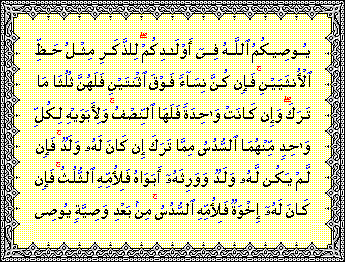 يُوصِيكُمُ ٱللَّهُ فِىٓ أَوْلَـٰدِكُمْ ۖ لِلذَّكَرِ مِثْلُ حَظِّ
ٱلْأُنثَيَيْنِ ۚ فَإِن كُنَّ نِسَآءً فَوْقَ ٱثْنَتَيْنِ فَلَهُنَّ ثُلُثَا مَا
تَرَكَ ۖ وَإِن كَانَتْ وَٰحِدَةً فَلَهَا ٱلنِّصْفُ ۚ وَلِأَبَوَيْهِ لِكُلِّ
وَٰحِدٍ مِّنْهُمَا ٱلسُّدُسُ مِمَّا تَرَكَ إِن كَانَ لَهُۥ وَلَدٌ ۚ فَإِن
لَّمْ يَكُن لَّهُۥ وَلَدٌ وَوَرِثَهُۥٓ أَبَوَاهُ فَلِأُمِّهِ ٱلثُّلُثُ ۚ فَإِن
كَانَ لَهُۥٓ إِخْوَةٌ فَلِأُمِّهِ ٱلسُّدُسُ ۚ مِنۢ بَعْدِ وَصِيَّةٍ يُوصِى